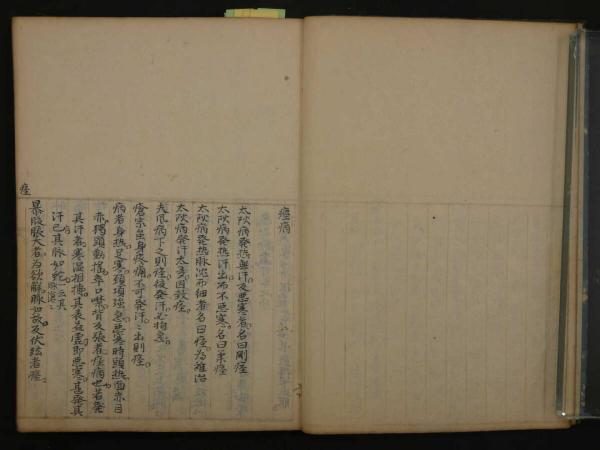 痙病
太陽病発熱無汗反悪寒者名曰剛痙
太陽病発熱汗出而不悪寒名曰柔痙
太陽病発熱脉沈而細者名曰痙為難治
太陽病発汗太多因致痙
夫風病下之則痙復発汗必拘急
瘡家雖身疼痛不可発汗汗出則痙
病者身熱足寒頚項強急悪寒時頭熱面赤目
赤独頭動揺卒口噤背反張者痙病也若発
其汗者寒湿相搏其表益虚即悪寒甚発其
汗已其脉如蛇
暴腹脹大者為欲解脉如故反伏弦者痙
痙